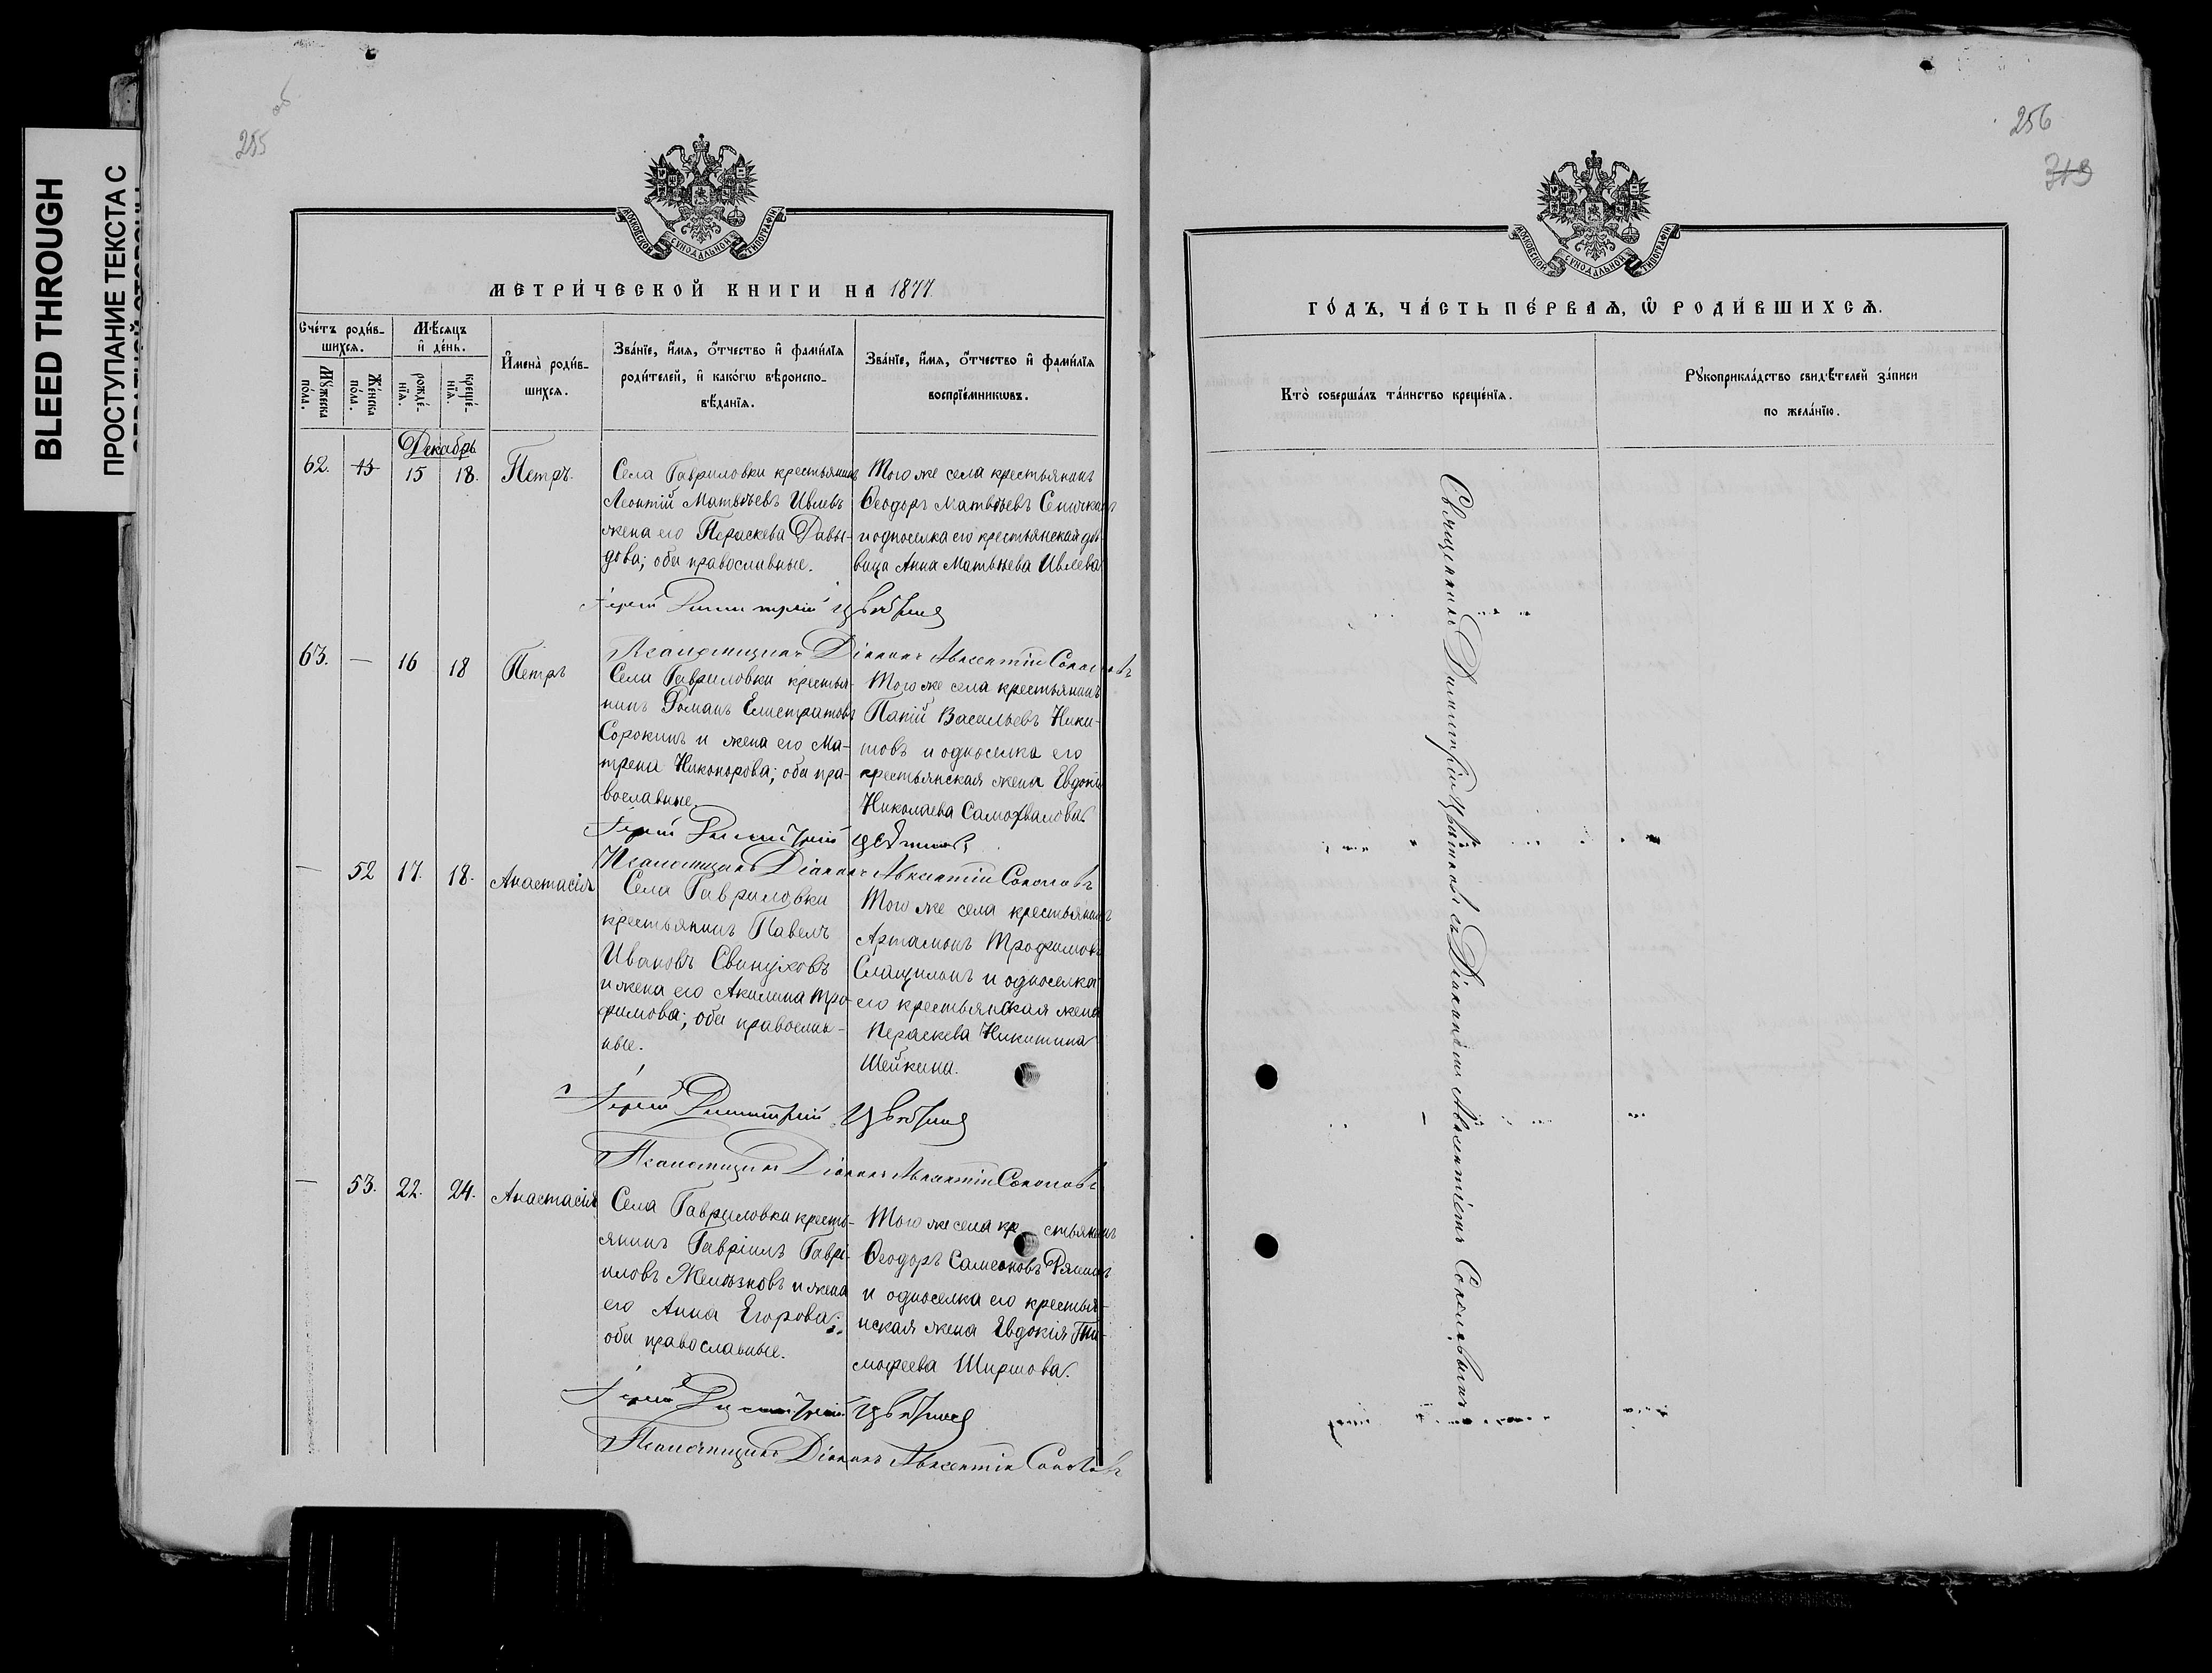 BLEED THROUGH
ПРОСТУПАНИЕ ТЕКСТА С
255 об
МОСКОВСКОЙ СѴНОДАЛЬНОЙ ТИПОГРАФІИ
МЕТРИ́ЧЕСКОЙ КНИГИ НА 1877
Сче́тъ роди́в-
шихсѧ.
Мѣ́сѧцъ
и҆ де́нь.
И҆мена̀ роди́в-
шихсѧ.
Зва́нїе, и҆́мѧ, ѻ҆́тчество и҆ фами́лїѧ
роди́телей, и҆ како́гѡ вѣроиспо-
вѣ́данїѧ.
Зва́нїе, и҆́мѧ, ѻ҆́тчество и҆ фами́лїѧ
воспрїе́мникѡвъ.
Мꙋ́жеска
по́ла.
Же́нска
по́ла.
рожде́-
нїѧ.
креще́-
нїѧ.
Декабрь
62. 15 15 18. Петръ.
Села Гавриловки крестьянинъ
Леонтій Матвѣевъ Ивлевъ
жена его Параскева Давы-
дова; оба православные.
Того же села крестьянинъ
Ѳеодоръ Матвѣевъ
и односелка его крестьянская дѣ-
вица Анна Матвѣева Ивлева.
Іерей Димитрій Цвѣтковъ
Псаломщикъ Діаконъ Авксентій Соколовъ
63. — 16 18 Петръ
Села Гавриловки крестья-
нинъ Романъ Елистратовъ
Сорокинъ и жена его Ма-
трена Никонорова; оба пра-
вославные.
Того же села крестьянинъ
Папій Васильевъ Ники-
товъ и односелка его
крестьянская жена Евдокія
Николаева Самохвалова
Іерей Димитрій Цвѣтковъ
Псаломщикъ Діаконъ Авксентій Соколовъ
— 52 17. 18. Анастасія
Села Гавриловки
крестьянинъ Павелъ
Ивановъ Свинуховъ
и жена его Акилина Тро-
фимова; оба православ-
ные.
Того же села крестьянинъ
Артамонъ Трофимовъ
и односелка
его крестьянская жена
Параскева Никитина
Шейкина.
Іерей Димитрій Цвѣтковъ
Псаломщикъ Діаконъ Авксентій Соколовъ
— 53. 22. 24. Анастасія
Села Гавриловки кресть-
янинъ Гавріилъ Гаврі-
иловъ Желѣзновъ и жена
его Анна Егорова;
оба православные.
Того же села кр стьянинъ
Ѳеодоръ Самсоновъ
и односелка его крестья-
нская жена Евдокія Ти-
мофеева Ширшова.
Іерей Димитрій Цвѣтковъ
Псаломщикъ Діаконъ Авксентій Соколовъ
256
319
МОСКОВСКОЙ СѴНОДАЛЬНОЙ ТИПОГРАФІИ
ГО́ДЪ, ЧА́СТЬ ПЕ́РВАѦ, Ѡ҆ РОДИ́ВШИХСѦ.
Кто̀ соверша́лъ та́инство креще́нїѧ.
Рꙋкоприкла́дство свидѣ́телей за́писи
по жела́нїю.
Священникъ Димитрій Цвѣтковъ съ Діакономъ Авксентіемъ Соколовымъ